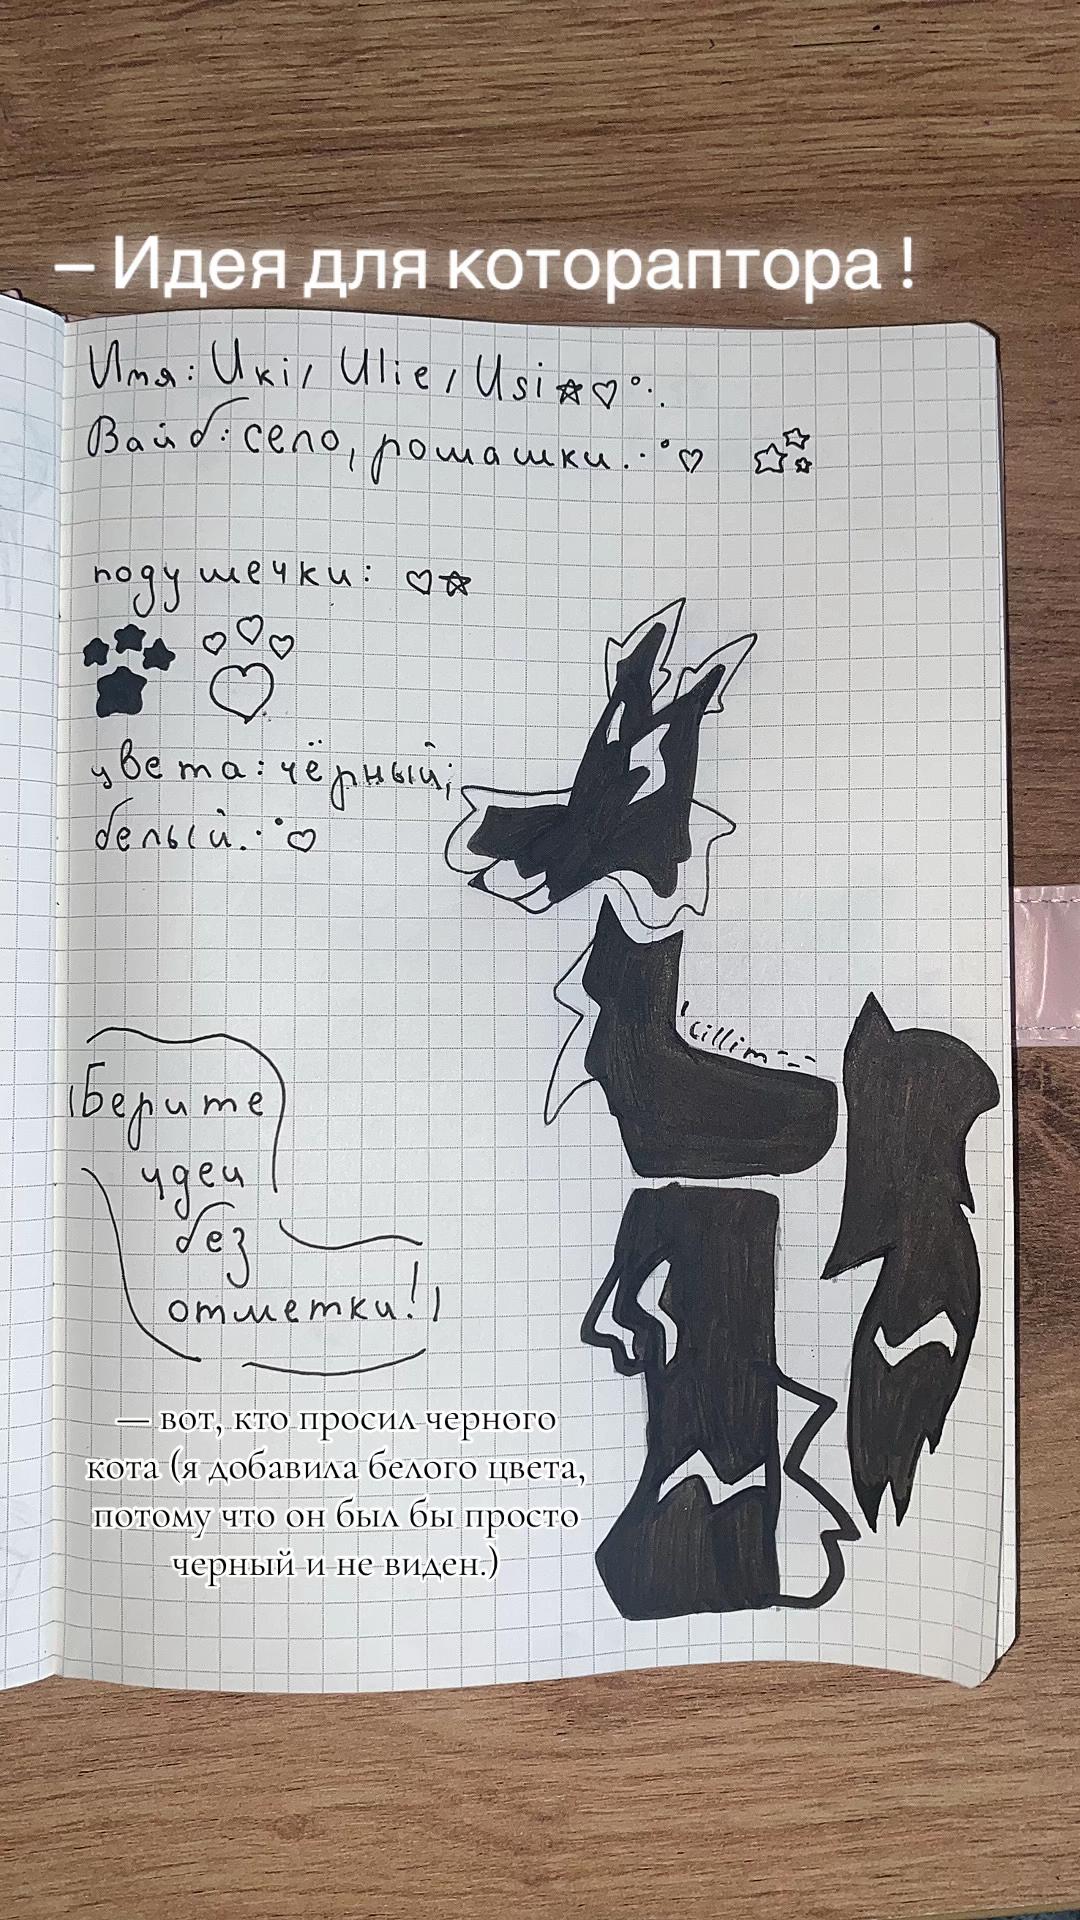 – Идея для котораптора !
Имя: Uki, Ulie, Usi
Вайб: село, ромашки.
подушечки:
цвета: чёрный,
белый.
killim
Берите
идеи
без
отметки!
— вот, кто просил черного
кота (я добавила белого цвета,
потому что он был бы просто
черный и не виден.)